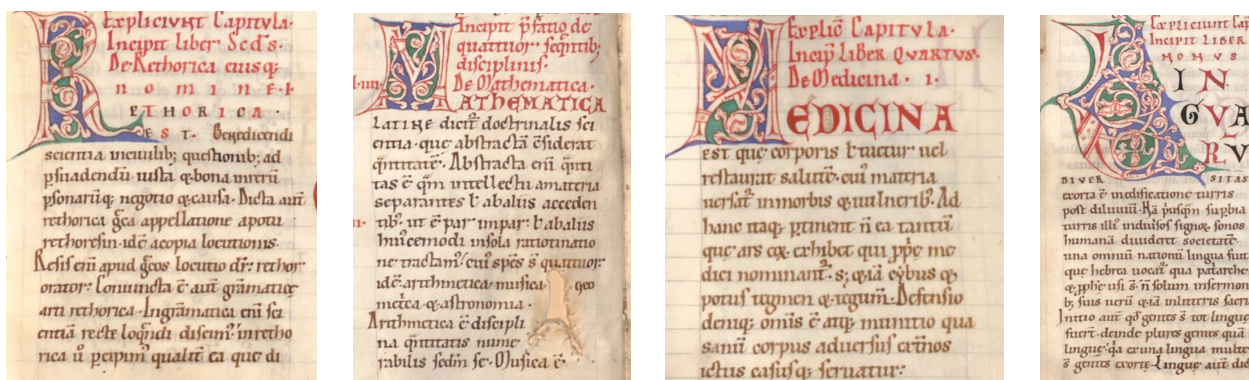 Expliciunt Capitula·
Incipit liber Scds·
De Rethorica eiusq;
nomine·I·
RETHORICA·
EST· Benedicendi
scientia in ciuilib; questionib; ad
psuadendū iusta q bona
psonariūq; negotio q causa· Dicta aūt
rethorica gca appellatione apotu
rethoresin·idē acopia locutionis·
Resis eni apud gcos locutio dr: rethor
orator: Coniuncta ē aut gramaticę
arti rethorica· Ingramatica eni sci
entiā recte loqndi discim: inretho
rica u pcipim qualit ea quę di
Incipit pfatio de
quattuor· seqntib;
disciplinis·
·IIII· De Mathematica·
MATHEMATICA
LATINE dicit doctrinalis sci
entia· quę abstractā csiderat
qntitatē· Abstracta eni qnti
tas ē qm intellectu amateria
separantes l abaliis acceden
tib: ut ē par impar: l abaliis
huiccemodi insola ratiotinatio
ne tractam: cui spes s quattuor:
idē arithmetica· musica geo
metrca· q astronomia·
Arithmetica ē discipli
na qntitatis nume
rabilis sedm se· Musica ē
Explic Capitula·
Incip Liber Quartus·
De Medicina· I·
MEDICINA
EST quę corporis l tuetur uel
restaurat salutē· cui materia
uersat inmorbis q uulnerib: Ad
hanc itaq; ptinent n ea tantū
quę ars eq exhibet qui pprie me
dici nominant· s; q ia cybus q
potus tegmen q tegum· Defensio
deniq; omis ē atq; munitio qua
sanū corpus aduersus extnos
ictus casusq; seruatur:
Expliciunt Cap
Incipit Liber
NONUS
LIN
GUA
RU
DIVERSITAS
exorta ē inedificatione turris
post diluuiū· Na priusqm supbia
turris illi indiuisos signoq; sonos
humanā diuideret societatē·
una omniū nationū lingua fuit
quę hebrea uocat qua patarche
q pphę usi s n solum insermon
b; suis uerū q ia inlitteris sacri
Initio aut qd gentes s tot linguę
fuert· deinde plures gentes quā
linguę· qa ex una lingua multe
s gentes exorte· Linguę aut dic